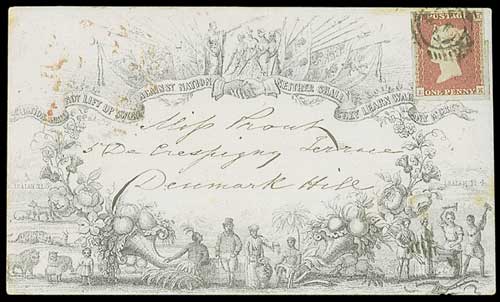 POSTAGE
ONE PENNY
NATION SHALL NOT LIFT UP SWORD AGAINST NATION NEITHER SHALL THEY LEARN WAR ANY MORE
Miss Prout
5 De Crespigny Terrace
Denmark Hill
ISAIAH
ISAIAH